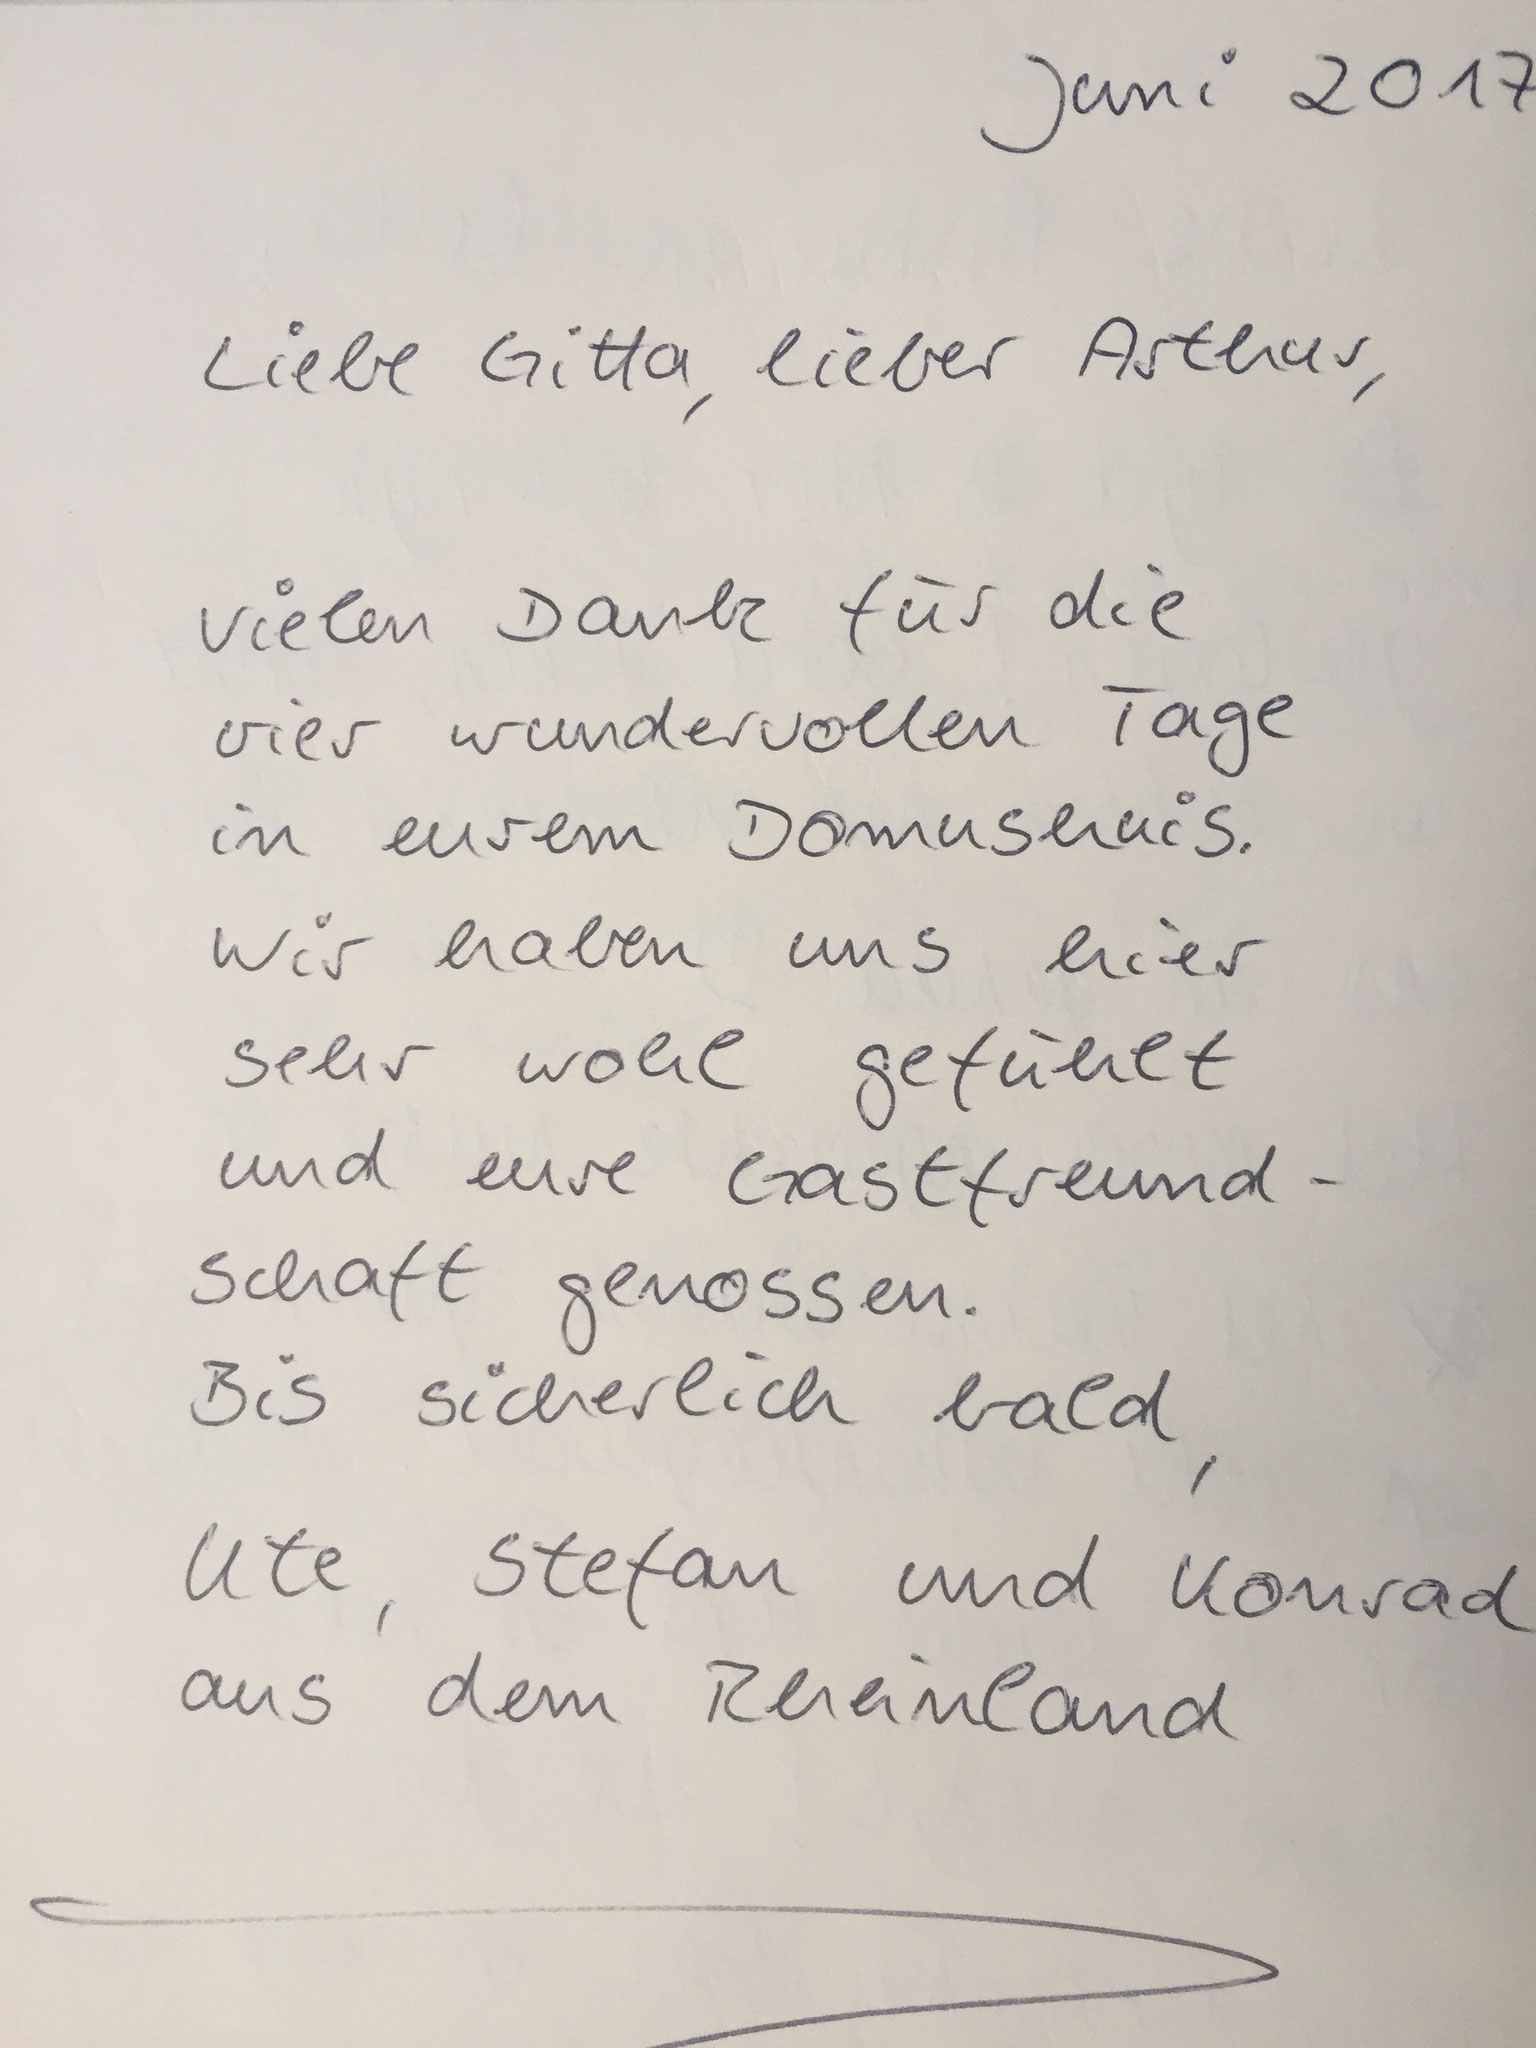 Juni 2017
Liebe Gitta, lieber Arthur,
vielen Dank für die
vier wundervollen Tage
in eurem Domusenuis.
Wir haben uns hier
sehr wohl gefühlt
und eure Gastfreund-
schaft genossen.
Bis sicherlich bald,
Ute, Stefan und Konrad
aus dem Rheinland